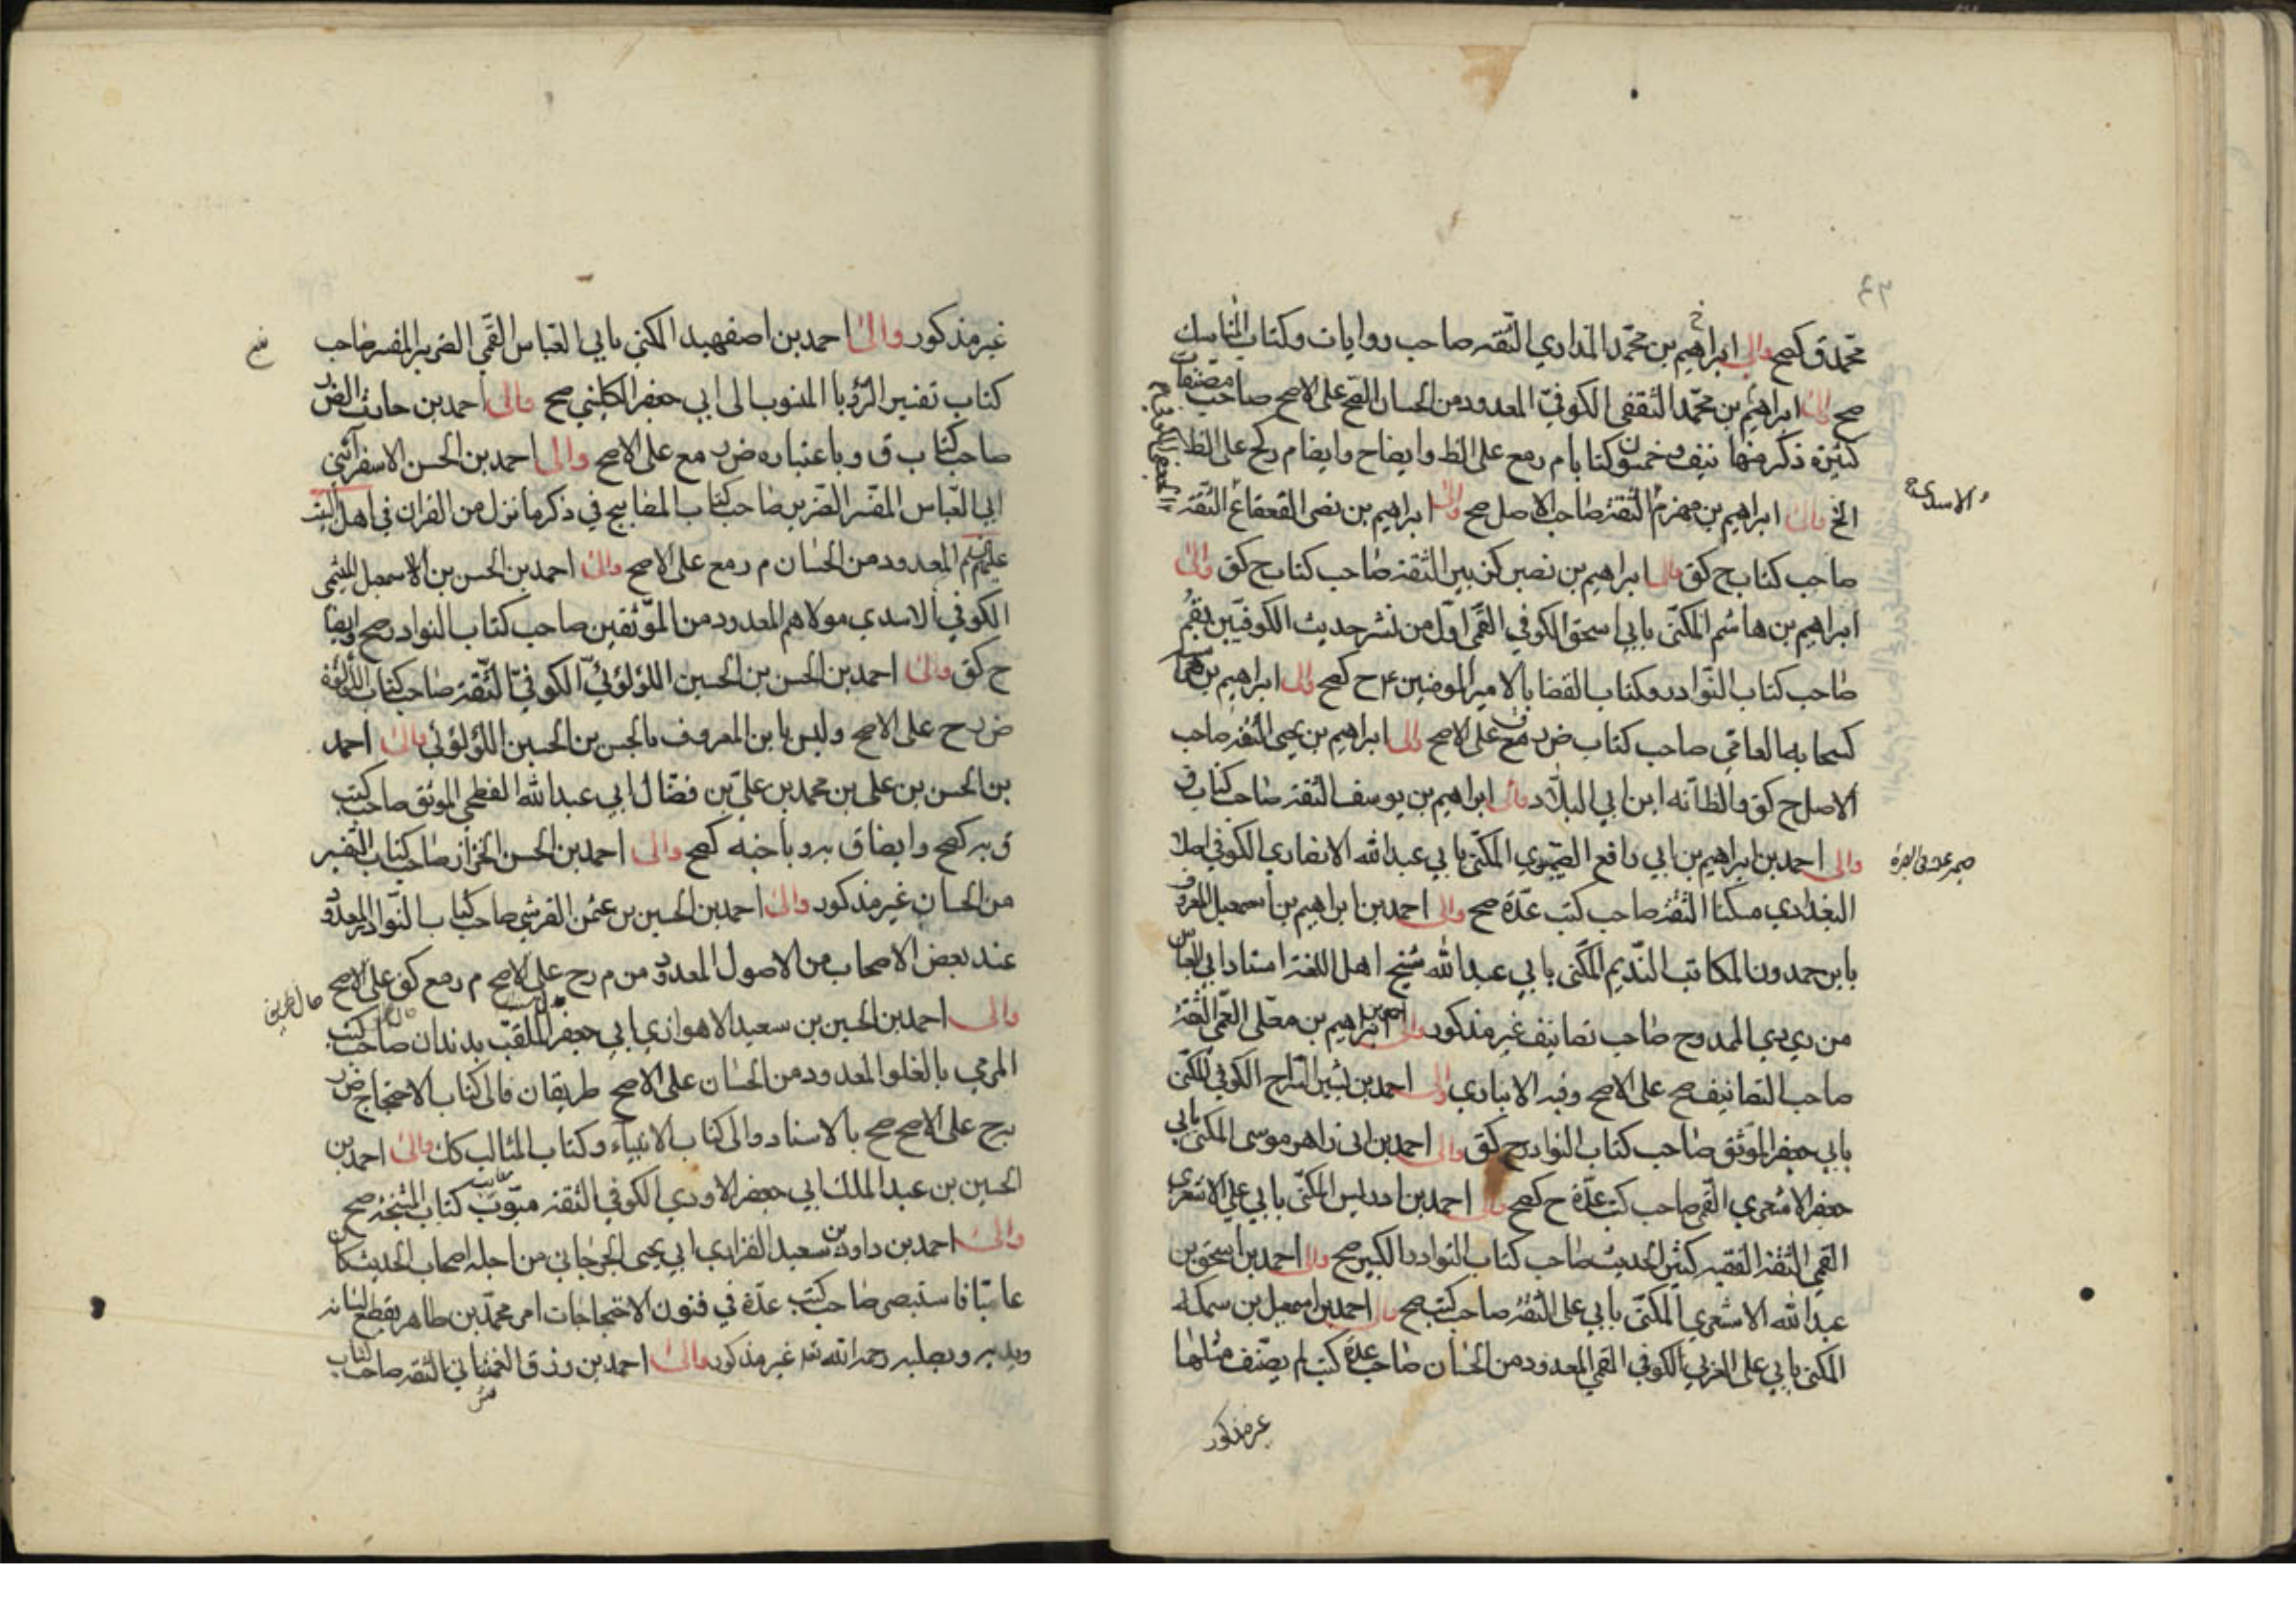 محمد ق كصح والى ابراهيم بن محمد المذاري الثقه صاحب روايات وكتاب المناسك
صح والى ابراهيم بن محمد الثقفي الكوفي المعدود من الحسان الصح على الاصح صاحب مصنفات
كثيرة ذكر منها نيف وخمسون كتابا م ر مع على الظ وايضا ح وايضا م ر كح على الظ
الخ والى ابراهيم بن مهزم الثقة صاحب الاصل صح والى ابراهيم بن نصر القعقاع الثقة
والاسدي
صاحب كتاب ح كق والى ابراهيم بن نصير كن بين الثقة صاحب كتاب ح كق والى
ابراهيم بن هاشم المكنى بابي اسحق الكوفي القمي اول من نشر حديث الكوفيين بقم
صاحب كتاب النوادر وكتاب القضايا لامير المومنين ع ح كصح والى ابراهيم بن
صاحب كتاب ض ر مع على الاصح والى ابراهيم بن يحيى الثقة صاحب
الاصل ح كق والظ انه ابن ابي البلاد والى ابراهيم بن يوسف الثقة صاحب كتاب ق
والى احمد بن ابراهيم بن ابي رافع الصيمري المكنى بابي عبد الله الانصاري الكوفي اصلا
البغدادي مسكنا الثقة صاحب كتب عدة صح والى احمد بن ابراهيم بن اسمعيل المعروف
بابن حمدون الكاتب النديم المكنى بابي عبد الله شيخ اهل اللغة استاد ابي العباس
من ري دي الممدوح صاحب تصانيف غير مذكور والى احمد بن ابراهيم بن معلى العمي الثقة
صاحب التصانيف صح على الاصح وفيه الانباري والى احمد بن بشير السراج الكوفي المكنى
بابي جعفر الموثق صاحب كتاب النوادر ح كق والى احمد بن ابي زاهر موسى المكنى بابي
جعفر الاشعري القمي صاحب كتب عدة ح كصح والى احمد بن ادريس المكنى بابي علي الاشعري
القمي الثقة الفقيه كثير الحديث صاحب كتاب النوادر الكبير صح والى احمد بن اسحق بن
عبد الله الاشعري المكنى بابي على الثقة صاحب كتب صح والى احمد بن اسمعيل بن سمكه
المكنى بابي على العربي الكوفي القمي المعدود من الحسان صاحب عدة كتب لم يصنف مثلها
غير مذكور
غير مذكور والى احمد بن اصفهبد المكنى بابي العباس القمي الضرير المفسر صاحب
كتاب تفسير الرؤيا المنسوب الى ابي جعفر الكليني صح والى احمد بن حارث
صاحب كتاب ق وباعتباره ض ر مع على الاصح والى احمد بن الحسن الاسفرائني
ابي العباس المفسر الضرير صاحب كتاب المصابيح في ذكر ما نزل من القران في اهل البيت
عليهم السلم المعدود من الحسان م ر مع على الاصح والى احمد بن الحسن بن الاسمعيل الميثمي
الكوفي الاسدي مولاهم المعدود من الموثقين صاحب كتاب النوادر صح وايضا
ح كق والى احمد بن الحسن بن الحسين اللؤلؤئي الكوفي الثقة صاحب كتاب اللؤلؤة
ض ر ح على الاصح وليس بابن المعروف بالحسن بن الحسين اللؤلؤئي والى احمد
بن الحسن بن على بن محمد بن على بن فضال ابي عبد الله الفطحي الموثق صاحب كتب
ق بر كصح وايضا ق بر و باخيه كصح والى احمد بن الحسن الخزاز صاحب كتاب التفسير
من الحسان غير مذكور والى احمد بن الحسين بن عثمن القرشي صاحب كتاب النوادر المعدود
عند بعض الاصحاب من الاصول المعدود من م ر ح على الاصح م ر مع كق على الاصح
والى احمد بن الحسين بن سعيد الاهوازي ابي جعفر الملقب بدندان صاحب كتب
المرمي بالغلو المعدود من الحسان على الاصح طريقان فالى كتاب الاحتجاج ض ر
ح على الاصح صح بالاسناد والى كتاب الانبياء وكتاب المثالب كك والى احمد بن
الحسين بن عبد الملك ابي جعفر الاودي الكوفي الثقة مبوب كتاب المشيخة صح
والى احمد بن داود بن سعيد الفزاري ابي يحيى الجرجاني من اجلة اصحاب الحديث كان
عاميا فاستبصر صاحب كتب عدة في فنون الاحتجاجات امر محمد بن طاهر بقطع لسانه
ويديه وبصلبه رحمه الله غير مذكور والى احمد بن رزق الغمشاني الثقة صاحب كتاب